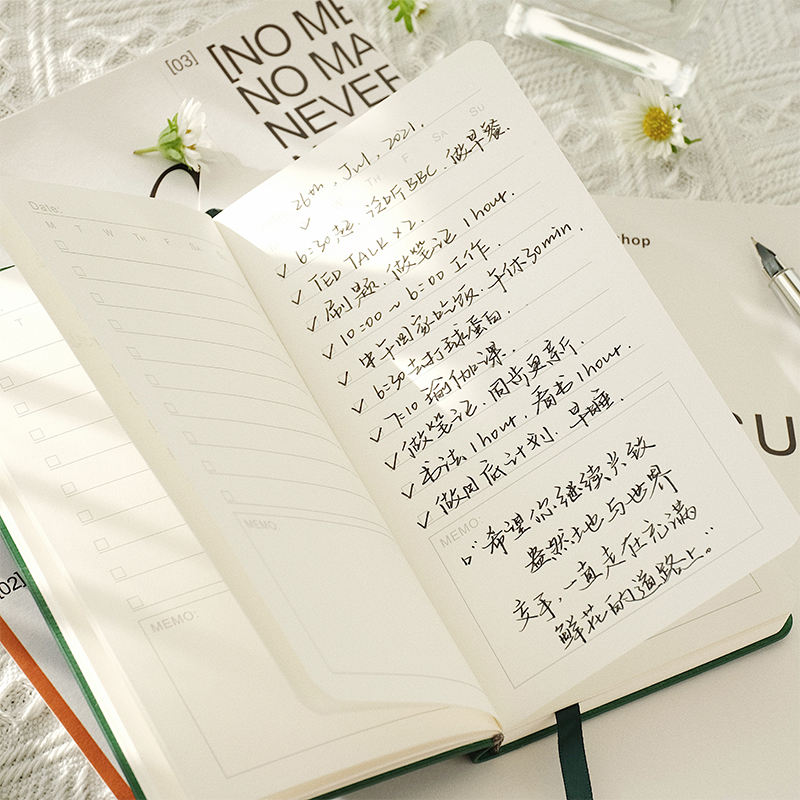 [03]
[NO ME
NO MA
NEVER
hop
U
[02]
Date:
M T W TH F
MEMO
T
MEMO:
TH F SA SU
26th, Jul, 2021.
✓ 6:30起. 泛听BBC. 做早餐.
✓ TED TALK × 2.
✓ 刷题. 做笔记 1 hour.
✓ 10:00 ~ 6:00 工作.
✓ 中午回家吃饭. 午休30min.
✓ 6:30去打球蛋白.
✓ 7:10 瑜伽课.
✓ 做笔记. 同步更新.
✓ 书法 1 hour. 看书 1 hour.
✓ 做月底计划. 早睡.
MEMO:
"希望你继续兴致
盎然地与世界
交手,一直走在充满
鲜花的道路上。"